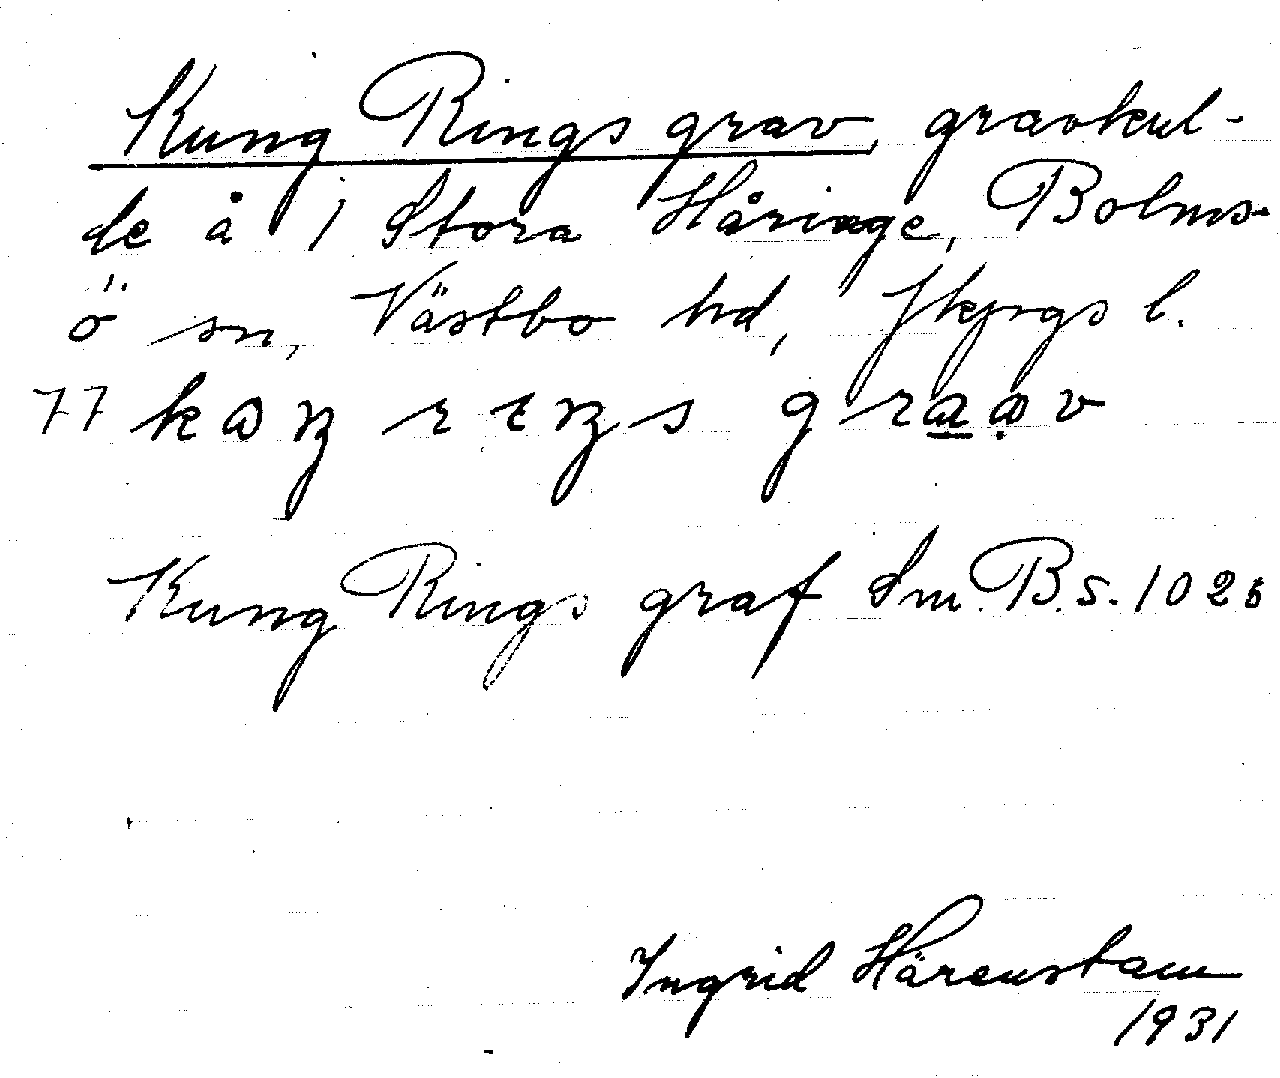 Kung Rings grav, gravkul-
de å 1 Stora Håringe, Bolms-
ö sn, Västbo hd, Jkpgs l.
77
Kung Rings graf Sm.B.s. 1026
Ingrid Härenstam
1931